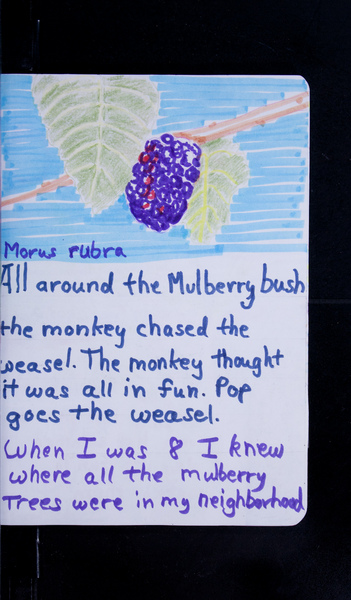 Morus rubra
All around the Mulberry bush
the monkey chased the
weasel. The monkey thought
it was all in fun. Pop
goes the weasel.
When I was 8 I knew
where all the mulberry
Trees were in my neighborhood